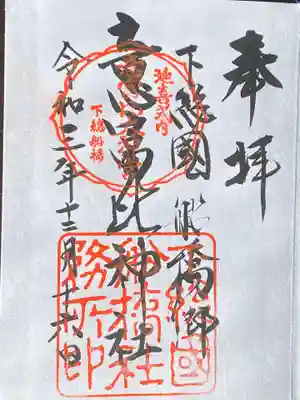 奉拝
下総國船橋郷
意富比神社
令和三年十二月十六日
延喜式内
下総船橋